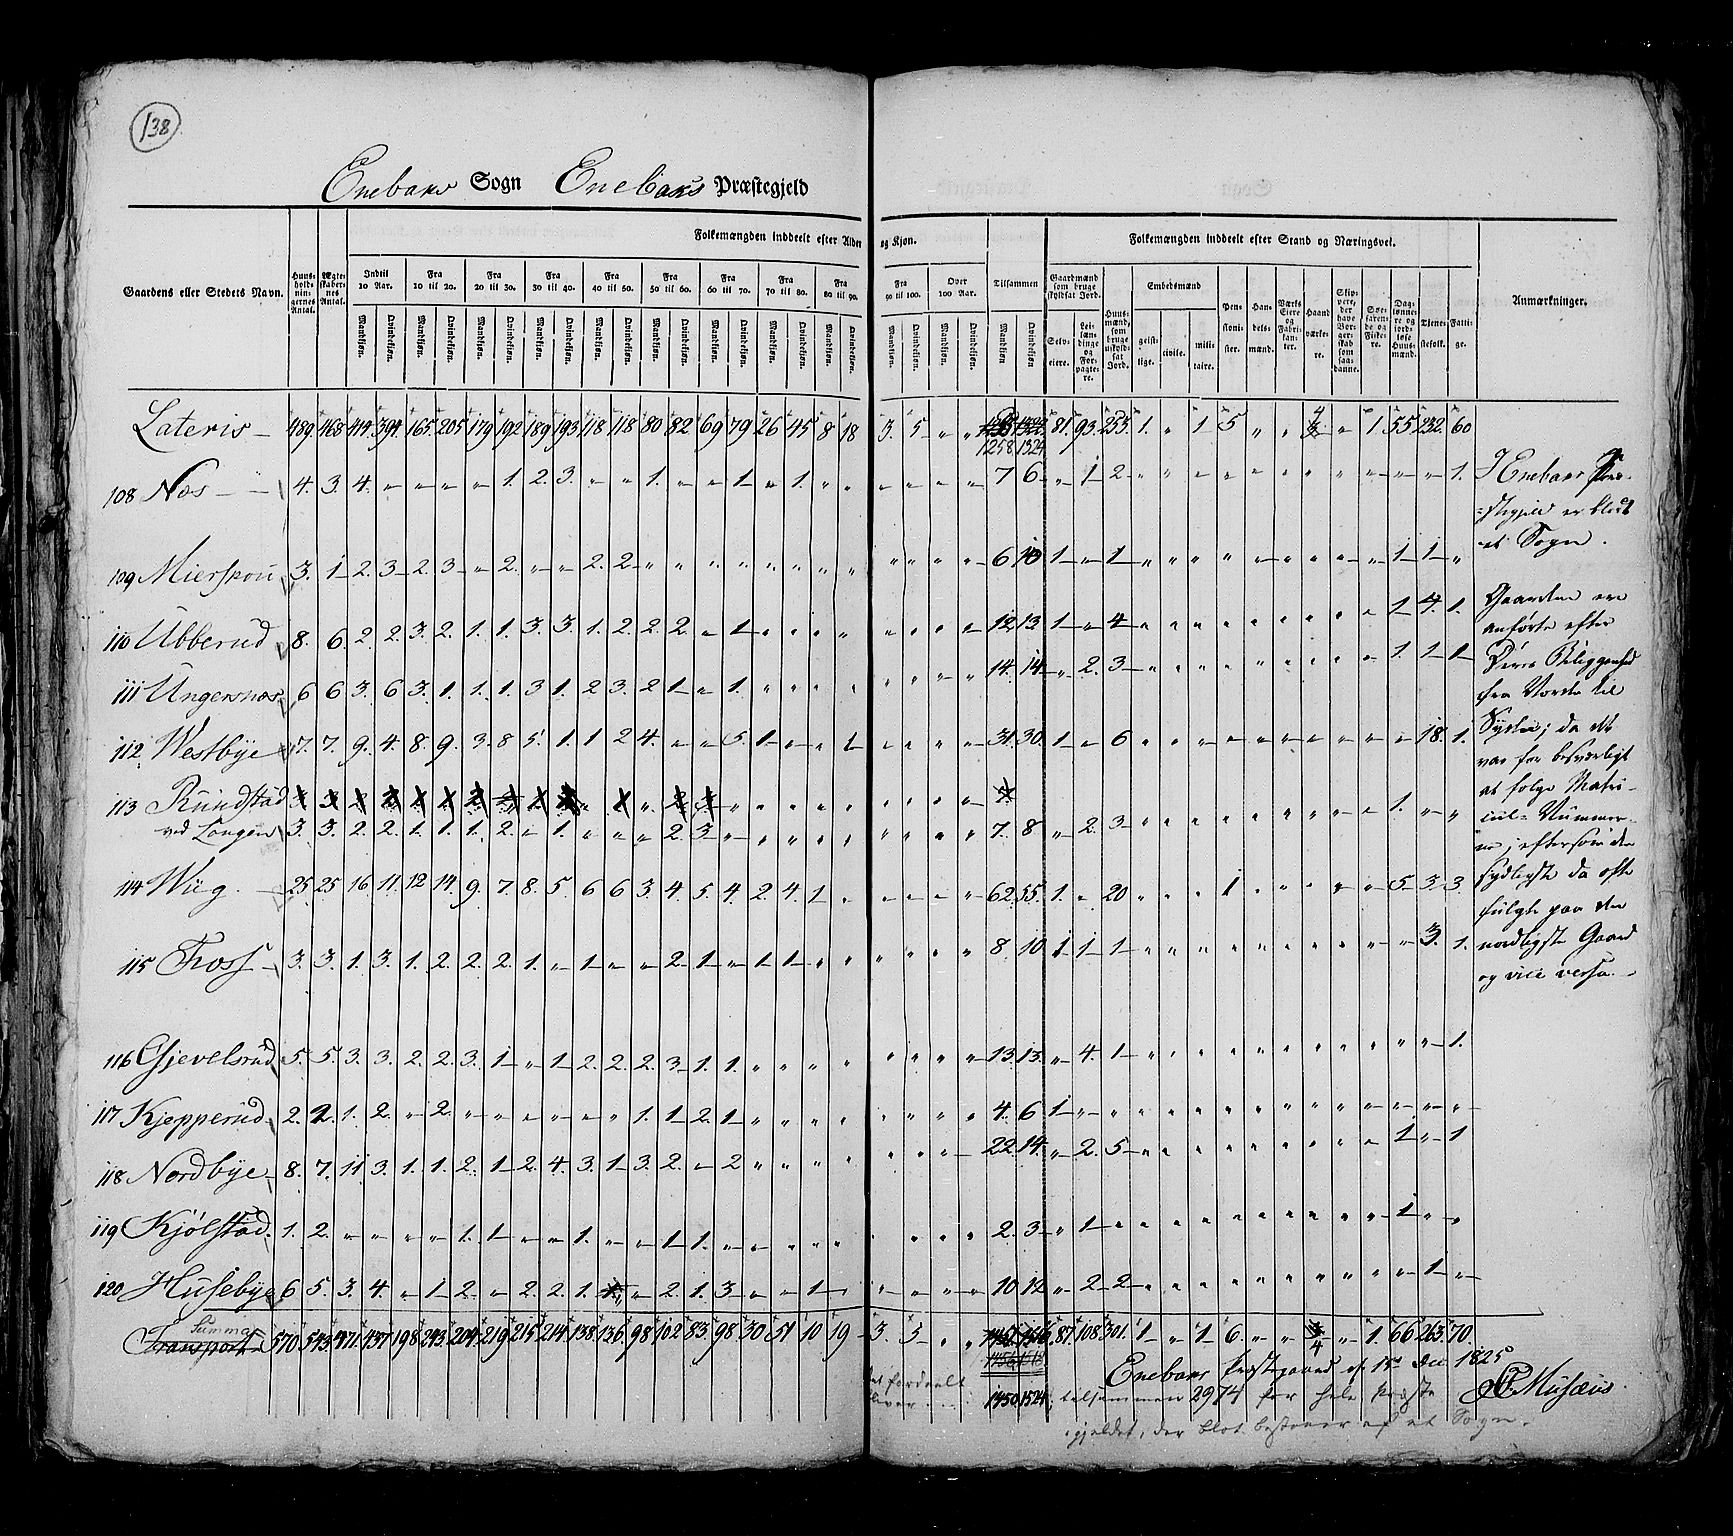 138
Enebaks Sogn Enebaks Præstegjeld
Gaardens eller Stedets Navn.
Huus-holdnin-gernes Antal.
Ægte-skaber-nes Antal.
Folkemængden inddeelt efter Alder og Kjøn.
Indtil 10 Aar. Fra 10 til 20. Fra 20 til 30. Fra 30 til 40. Fra 40 til 50. Fra 50 til 60. Fra 60 til 70. Fra 70 til 80. Fra 80 til 90. Fra 90 til 100. Over 100 Aar. Tilsammen
Mandkjøn. Qvindekjøn.
Folkemængden inddeelt efter Stand og Næringsvei.
Gaardmænd som bruge skyldsat Jord. Selv-eiere. Lei-lændinge og For-pagtere.
Huus-mænd, som bruge uskyld-sat Jord.
Embedsmænd geist-lige. civile. mili-taire.
Pen-sioni-ster. Han-dels-mænd. Værks Eiere og Fabri-kanter. Haand værke-re. Skip-pere, der have Bor-gerskab som saa-danne. Søe-farende og Fiske-re. Dag-lønne-re og jord-løse Huus-mænd. Tjene-stefolk. Fatti-ge.
Anmærkninger.
Lateris 489 468 414 394 165 205 179 192 189 193 118 118 80 82 69 79 26 45 8 18 3. 5 " " 1258 1324 81. 93. 253. 1. " 1 5 " " 4 " 1. 55 232. 60
108 Næs 4. 3. 4. " " " " 1. 2. 3. " " 1. " " 1. " 1. " " " " " " 7 6 " 1 2 " " " " " " " " " " " 1.
109 Mierskou 3. 1 2. 3 2. 3 " 2. " " 2. 2 " " " " " " " " " " " " 6 10 1 " 1 " " " " " " " " " 1 1 "
110 Ubberud 8. 6. 2. 2. 3. 2. 1. 1. 3. 3. 1. 2. 2. 2. " 1. " " " " " " " " 12. 13. 1 " 4 " " " " " " " " " 1 4. 1.
111 Ungersnæs 6 6 3. 6 3. 1. 1. 1. 3 1. 2 3. 2 1 " 1. " " " " " " " " 14. 14. " 2. 3 " " " " " " " " " 1. 1 1
112 Westbye 17. 7. 9. 4. 8. 9. 3. 8 5. 1. 1 2 4. " " 5. 1. " " 1 " " " " 31. 30. 1 " 6 " " " " " " " " " " 18. 1.
113 Rundstad
ved Langen 3. 3. 2. 2. 1. 1. 1. 2. " 1. " " " 2. 3. " " " " " " " " " 7. 8 " 2. 3 " " " " " " " " " 1. " "
114 Wiig. 25 25 16 11. 12 14. 9. 7. 8. 5. 6 6 3. 4. 5. 4. 2 4. 1 " " " " " 62. 55. 1. " 20 " " " 1 " " " " " 5. 3. 3
115 Foss 3. 3. 1. 3. 1. 2. 2. 2. 1. " 1 " " 2. 1. " 1 1. " " " " " " 8. 10. 1 1 1 " " " " " " " " " " 3. 1.
116 Gjevelsrud 5. 5. 3. 3. 2. 2. 3. 1 " 1 2. 2. 2. 3 1. 1. " " " " " " " " 13. 13. " 4. 1 " " " " " " " " " " " 1.
117 Kjepperud 2. 2. 1. 2. " 2. " " " " " " 1. 1. 2. 1. " " " " " " " " 4. 6. 1 " " " " " " " " " " " " " "
118 Nordbye 8. 7. 11 3. 1. 1. 2. 1 2. 4. 3. 1 3. 2. " 2 " " " " " " " " 22. 14. " 2. 5 " " " " " " " " " 1 " 1
119 Kjølstad. 1. 2. " " " " 1. 1 " " 1. " " 1 1. " " " " " " " " " 2. 3 " 1 " " " " " " " " " " 1 " "
120 Husebye 6 5. 3. 4. " 1 2. " 2. 2. 1. " " 2. 1. 3 " " 1 " " " " " 10 12 " 2 2 " " " " " " " " " " 1 "
Summa
Transport 570 543 471 437 198 243 204 219 215 214 138 136 98 102 83 98 30 51 10 19 3. 5 " " 87. 108 301. 1 " 1 6. " " 4 " 1. 66 263 70.
1450. 1524; tilsammen 2974 for hele Præste
gjeldet, der blot bestaaer af et Sogn.
Enebaks Præstgaard d. 15de Dec 1825
Musæus.
I Enebaks Præ-
stegjeld er blot
et Sogn.
Gaardene ere
anførte efter
Deres Beliggenhed
fra Norden til
Syden; da det
var for besværligt
at følge Matri-
cul-Nummer-
ne; eftersom den
sydligste da ofte
fulgte paa den
nordligste Gaard
og vice versa.